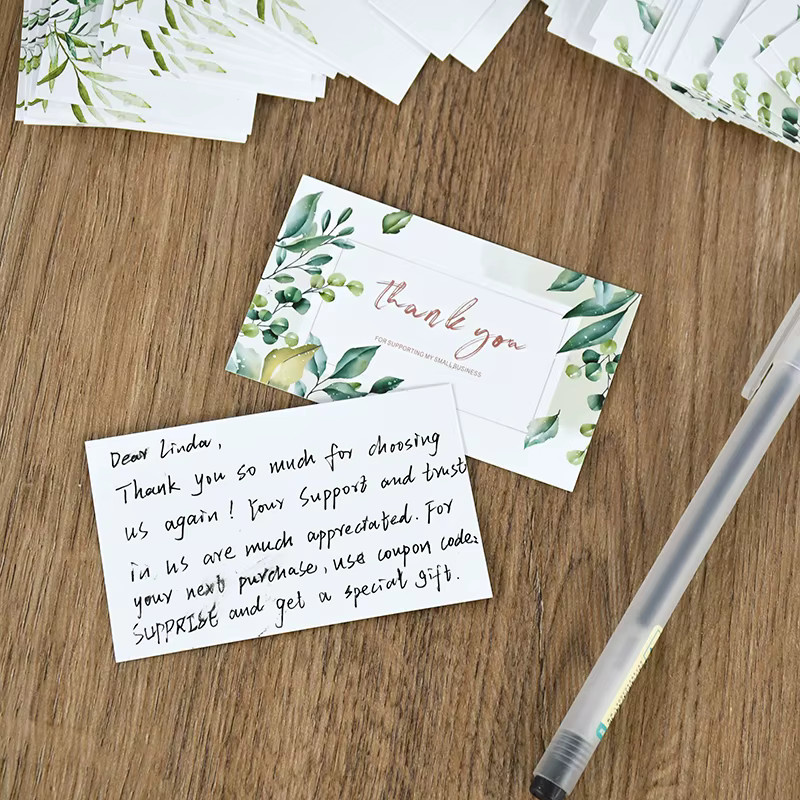 thank you
FOR SUPPORTING MY SMALL BUSINESS
Dear Linda,
Thank you so much for choosing
us again! Your support and trust
in us are much appreciated. For
your next purchase, use coupon code:
and get a special gift.